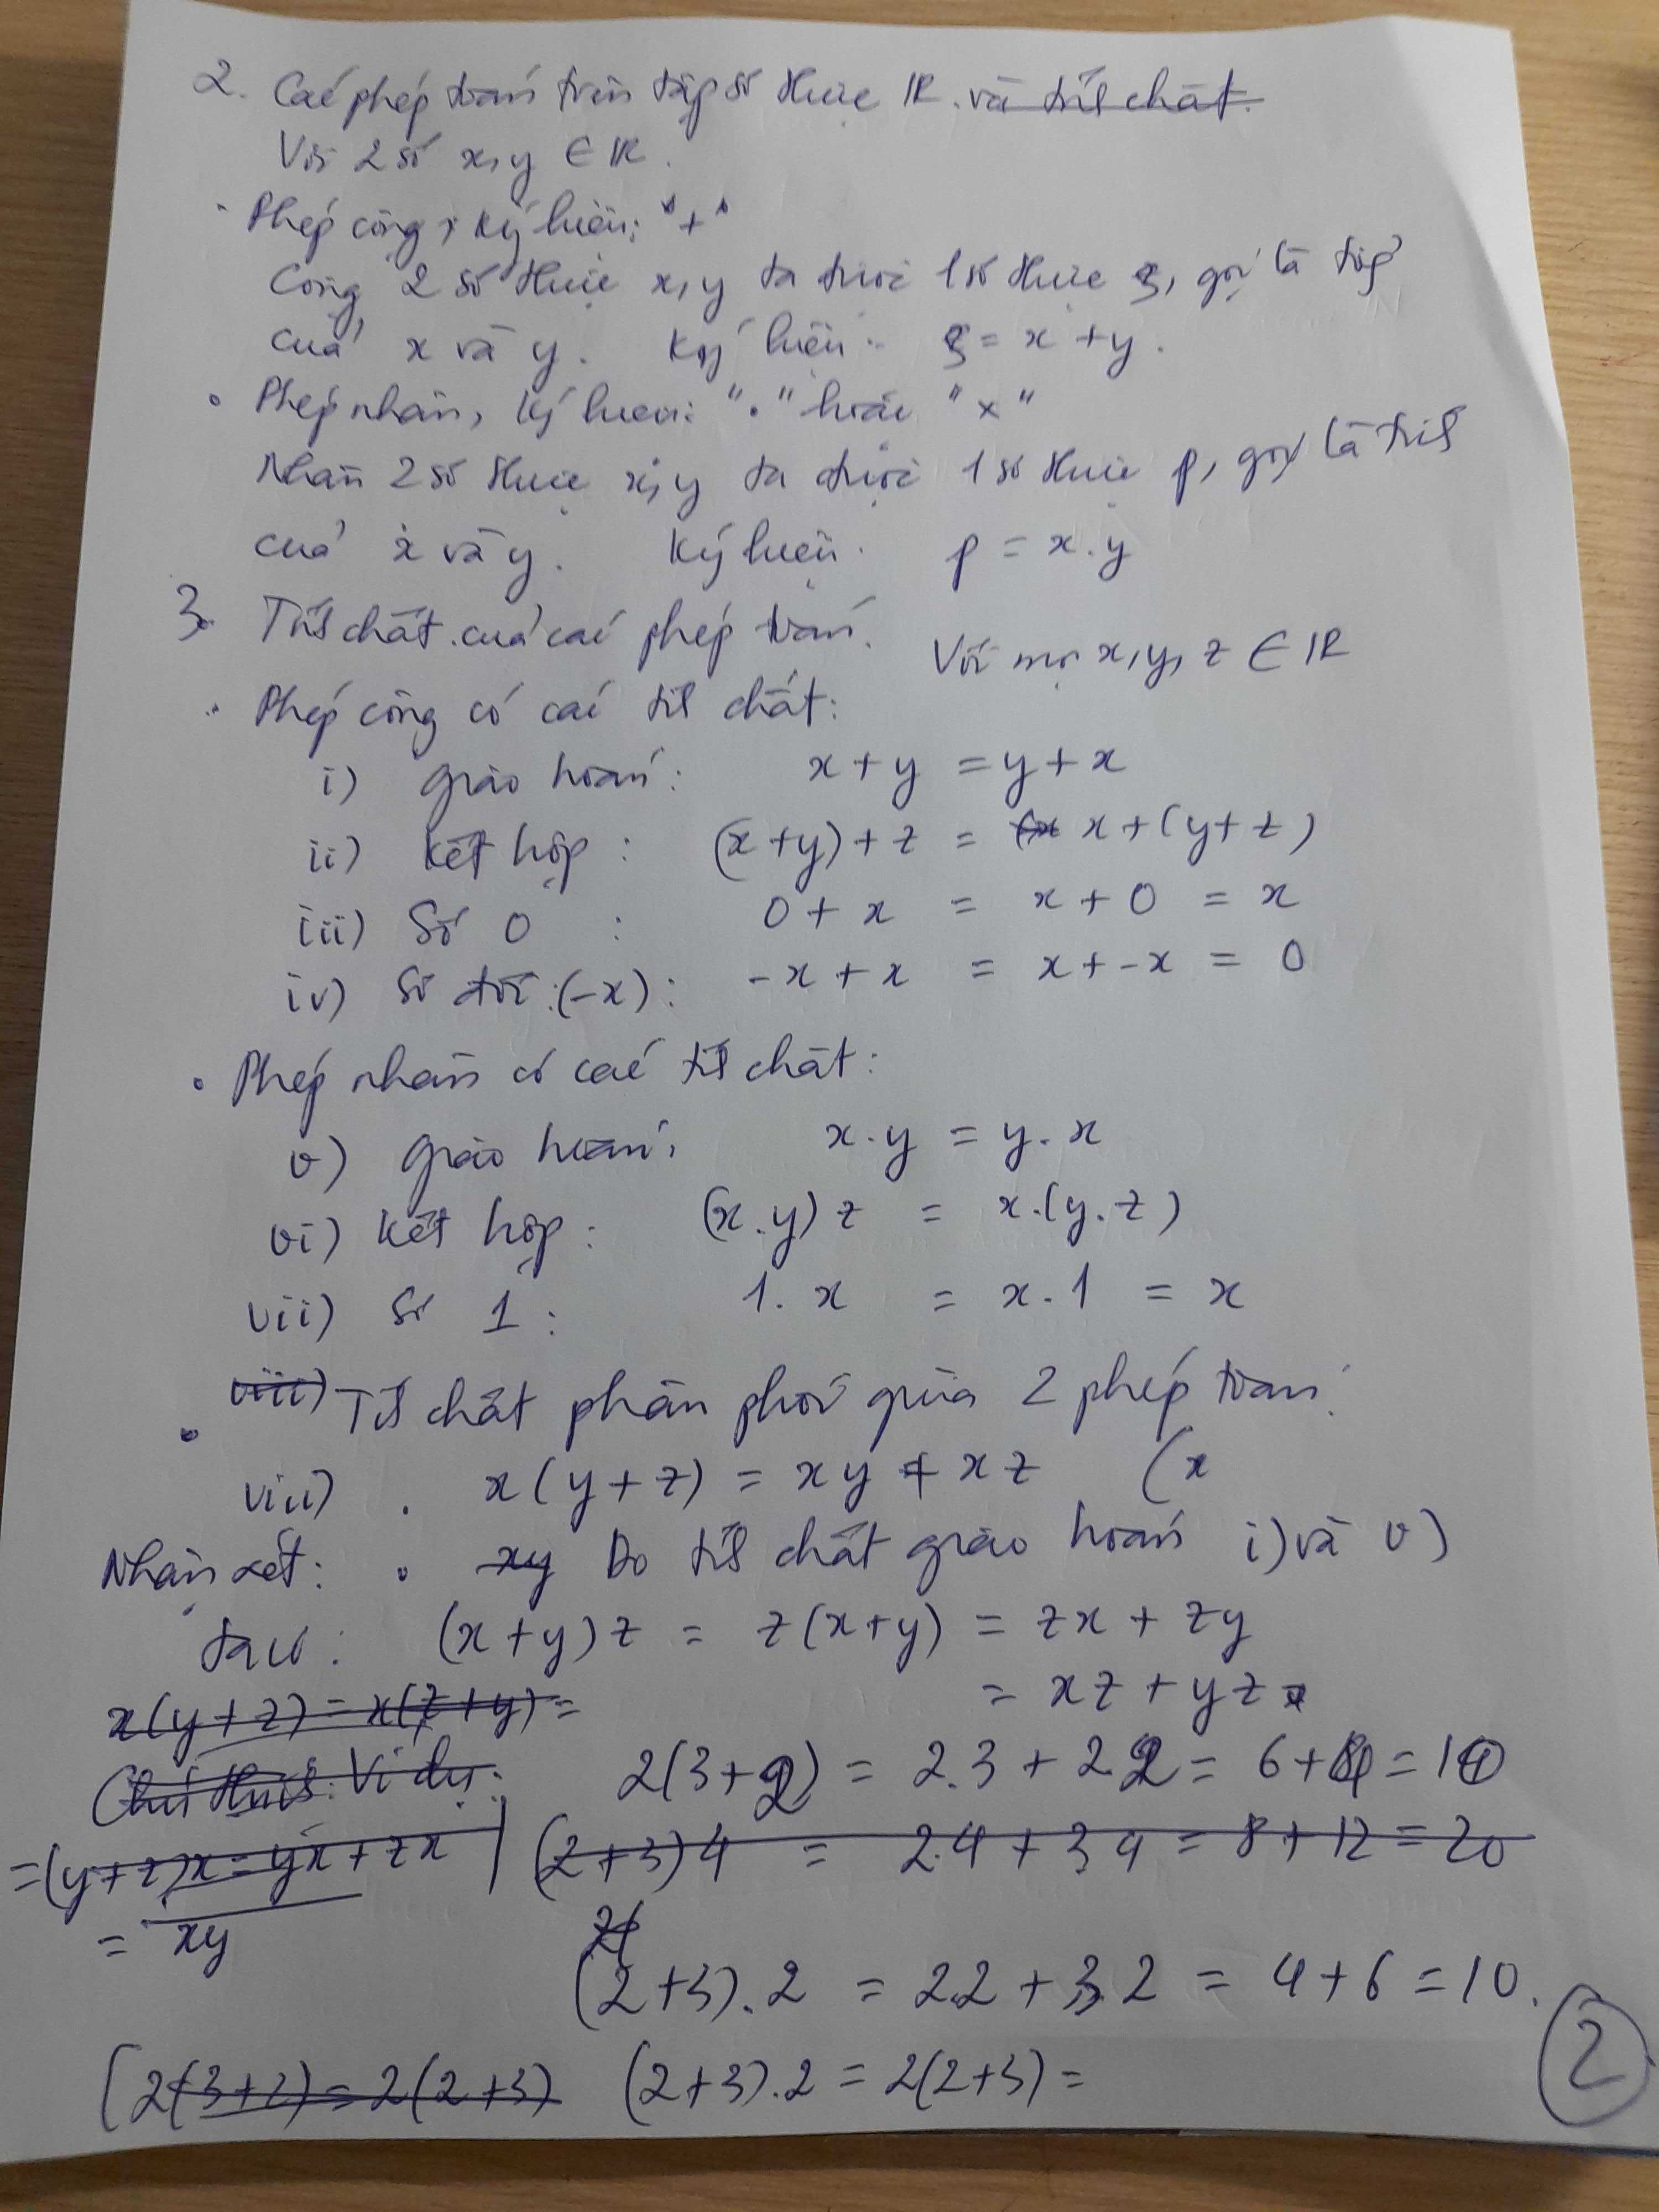 2. Các phép toán trên tập số thực ℝ. và tính chất.
Với 2 số x, y ∈ ℝ.
· Phép cộng, Ký hiệu: "+"
Cộng 2 số thực x, y ta được 1 số thực s, gọi là tổng
của x và y. Ký hiệu: s = x + y.
• Phép nhân, Ký hiệu: "•" hoặc "×"
Nhân 2 số thực x, y ta được 1 số thực p, gọi là tích
của x và y. Ký hiệu: p = x.y
3. Tính chất của các phép toán. Với mọi x, y, z ∈ ℝ
• Phép cộng có các tính chất:
i) giao hoán: x + y = y + x
ii) Kết hợp: (x + y) + z = x + (y + z)
iii) Số 0 : 0 + x = x + 0 = x
iv) Số đối: (-x): -x + x = x + -x = 0
• Phép nhân có các tính chất:
v) giao hoán: x.y = y.x
vi) Kết hợp: (x.y) z = x.(y.z)
vii) Số 1: 1. x = x. 1 = x
• viii) Tính chất phân phối giữa 2 phép toán:
viii) . x(y + z) = xy + xz (x
Nhận xét: • xy Do tính chất giao hoán i) và v)
ta có: (x + y) z = z(x + y) = zx + zy
x(y + z) = x(z + y) = = xz + yz
Chú thích: Ví dụ: 2(3+2) = 2.3 + 2.2 = 6+4 = 10
= (y+z)x = yx + zx (2+3)4 = 2.4 + 3.4 = 8 + 12 = 20
= xy 2(
(2+3).2 = 2.2 + 3.2 = 4 + 6 = 10.
[2(3+2) = 2(2+3) (2+3).2 = 2(2+3) =
2